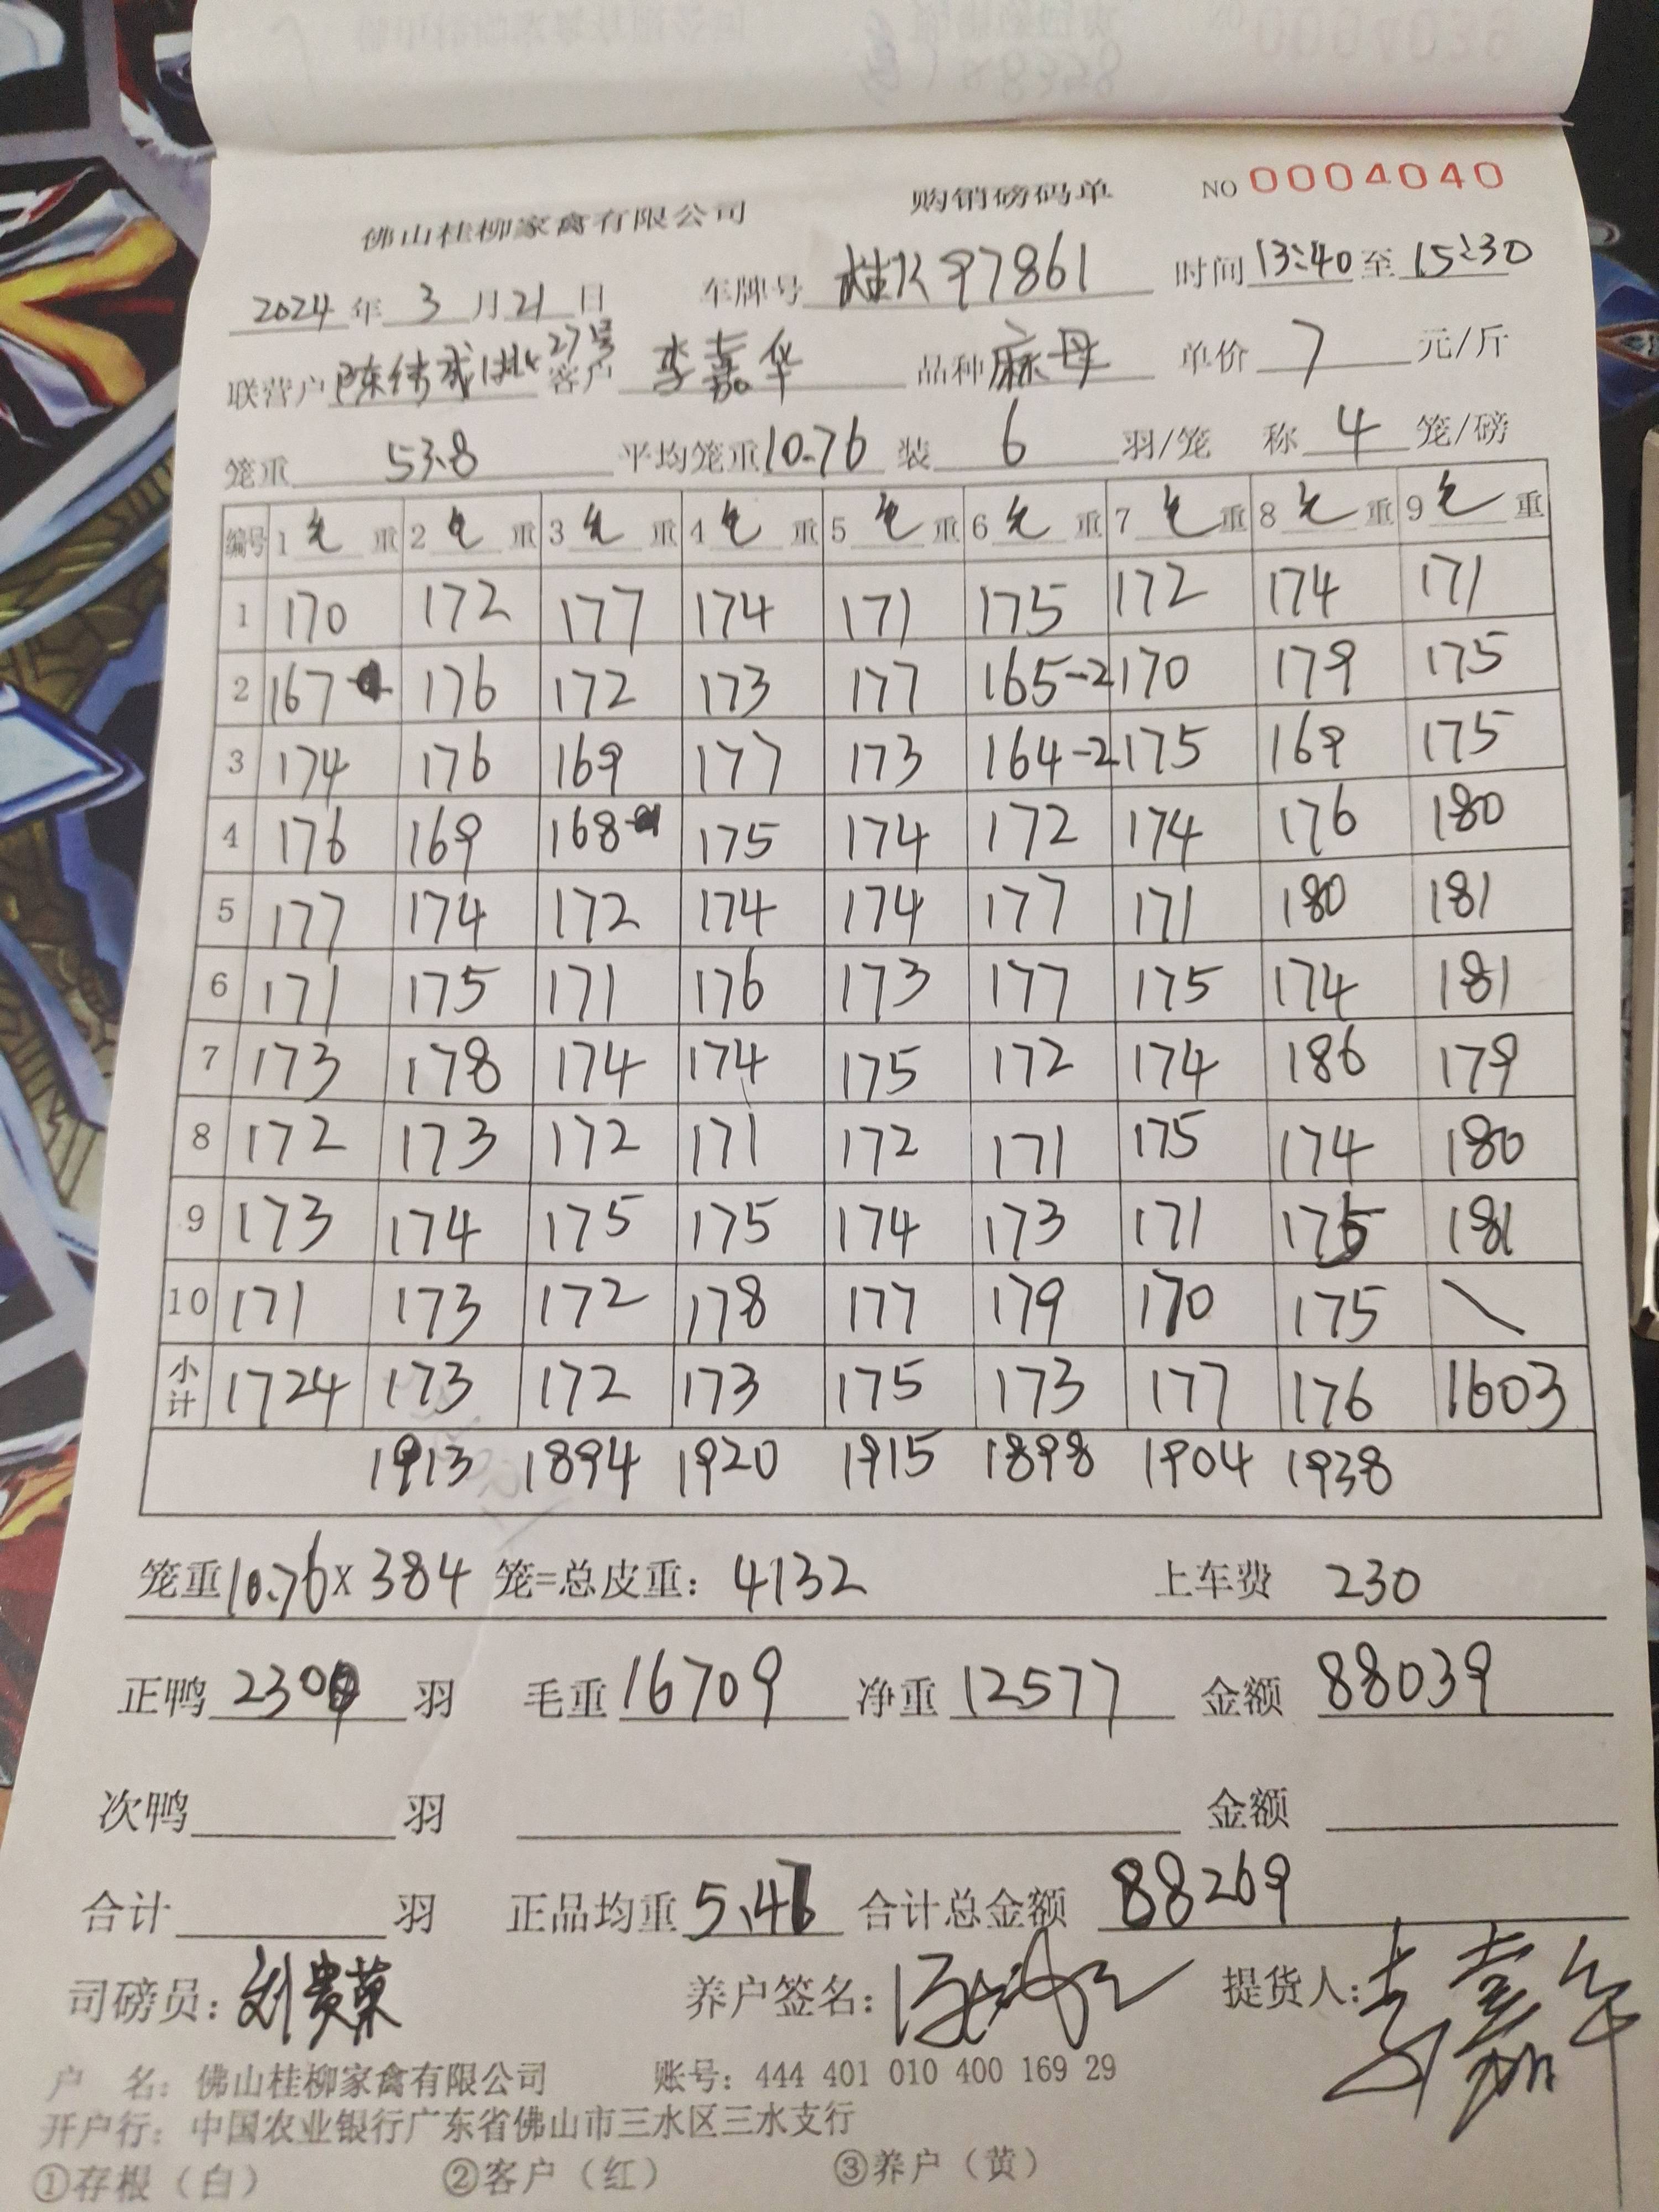 佛山桂柳家禽有限公司 购销磅码单 NO 0004040
2024 年 3 月 21 日 车牌号 桂K97861 时间 13:40 至 15:30
联营户 陈伟武 27号 客户 李嘉华 品种 麻母 单价 7 元/斤
笼重 53.8 平均笼重 10.76 装 6 羽/笼 称 4 笼/磅
编号 1 毛 重 2 毛 重 3 毛 重 4 毛 重 5 毛 重 6 毛 重 7 毛 重 8 毛 重 9 毛 重
1 170 172 177 174 171 175 172 174 171
2 167 176 172 173 177 165-2 170 179 175
3 174 176 169 177 173 164-2 175 169 175
4 176 169 168 175 174 172 174 176 180
5 177 174 172 174 174 177 171 180 181
6 171 175 171 176 173 177 175 174 181
7 173 178 174 174 175 172 174 186 179
8 172 173 172 171 172 171 175 174 180
9 173 174 175 175 174 173 171 175 181
10 171 173 172 178 177 179 170 175 \
小计 1724 173 172 173 175 173 177 176 1603
1913 1894 1920 1915 1898 1904 1938
笼重 10.76 x 384 笼=总皮重: 4132 上车费 230
正鸭 羽 毛重 16709 净重 12577 金额 88039
次鸭 羽 金额
合计 羽 正品均重 5.46 合计总金额 88269
司磅员: 刘贵荣 养户签名: 提货人: 李嘉华
户 名: 佛山桂柳家禽有限公司 账号: 444 401 010 400 169 29
开户行: 中国农业银行广东省佛山市三水区三水支行
①存根（白） ②客户（红） ③养户（黄）